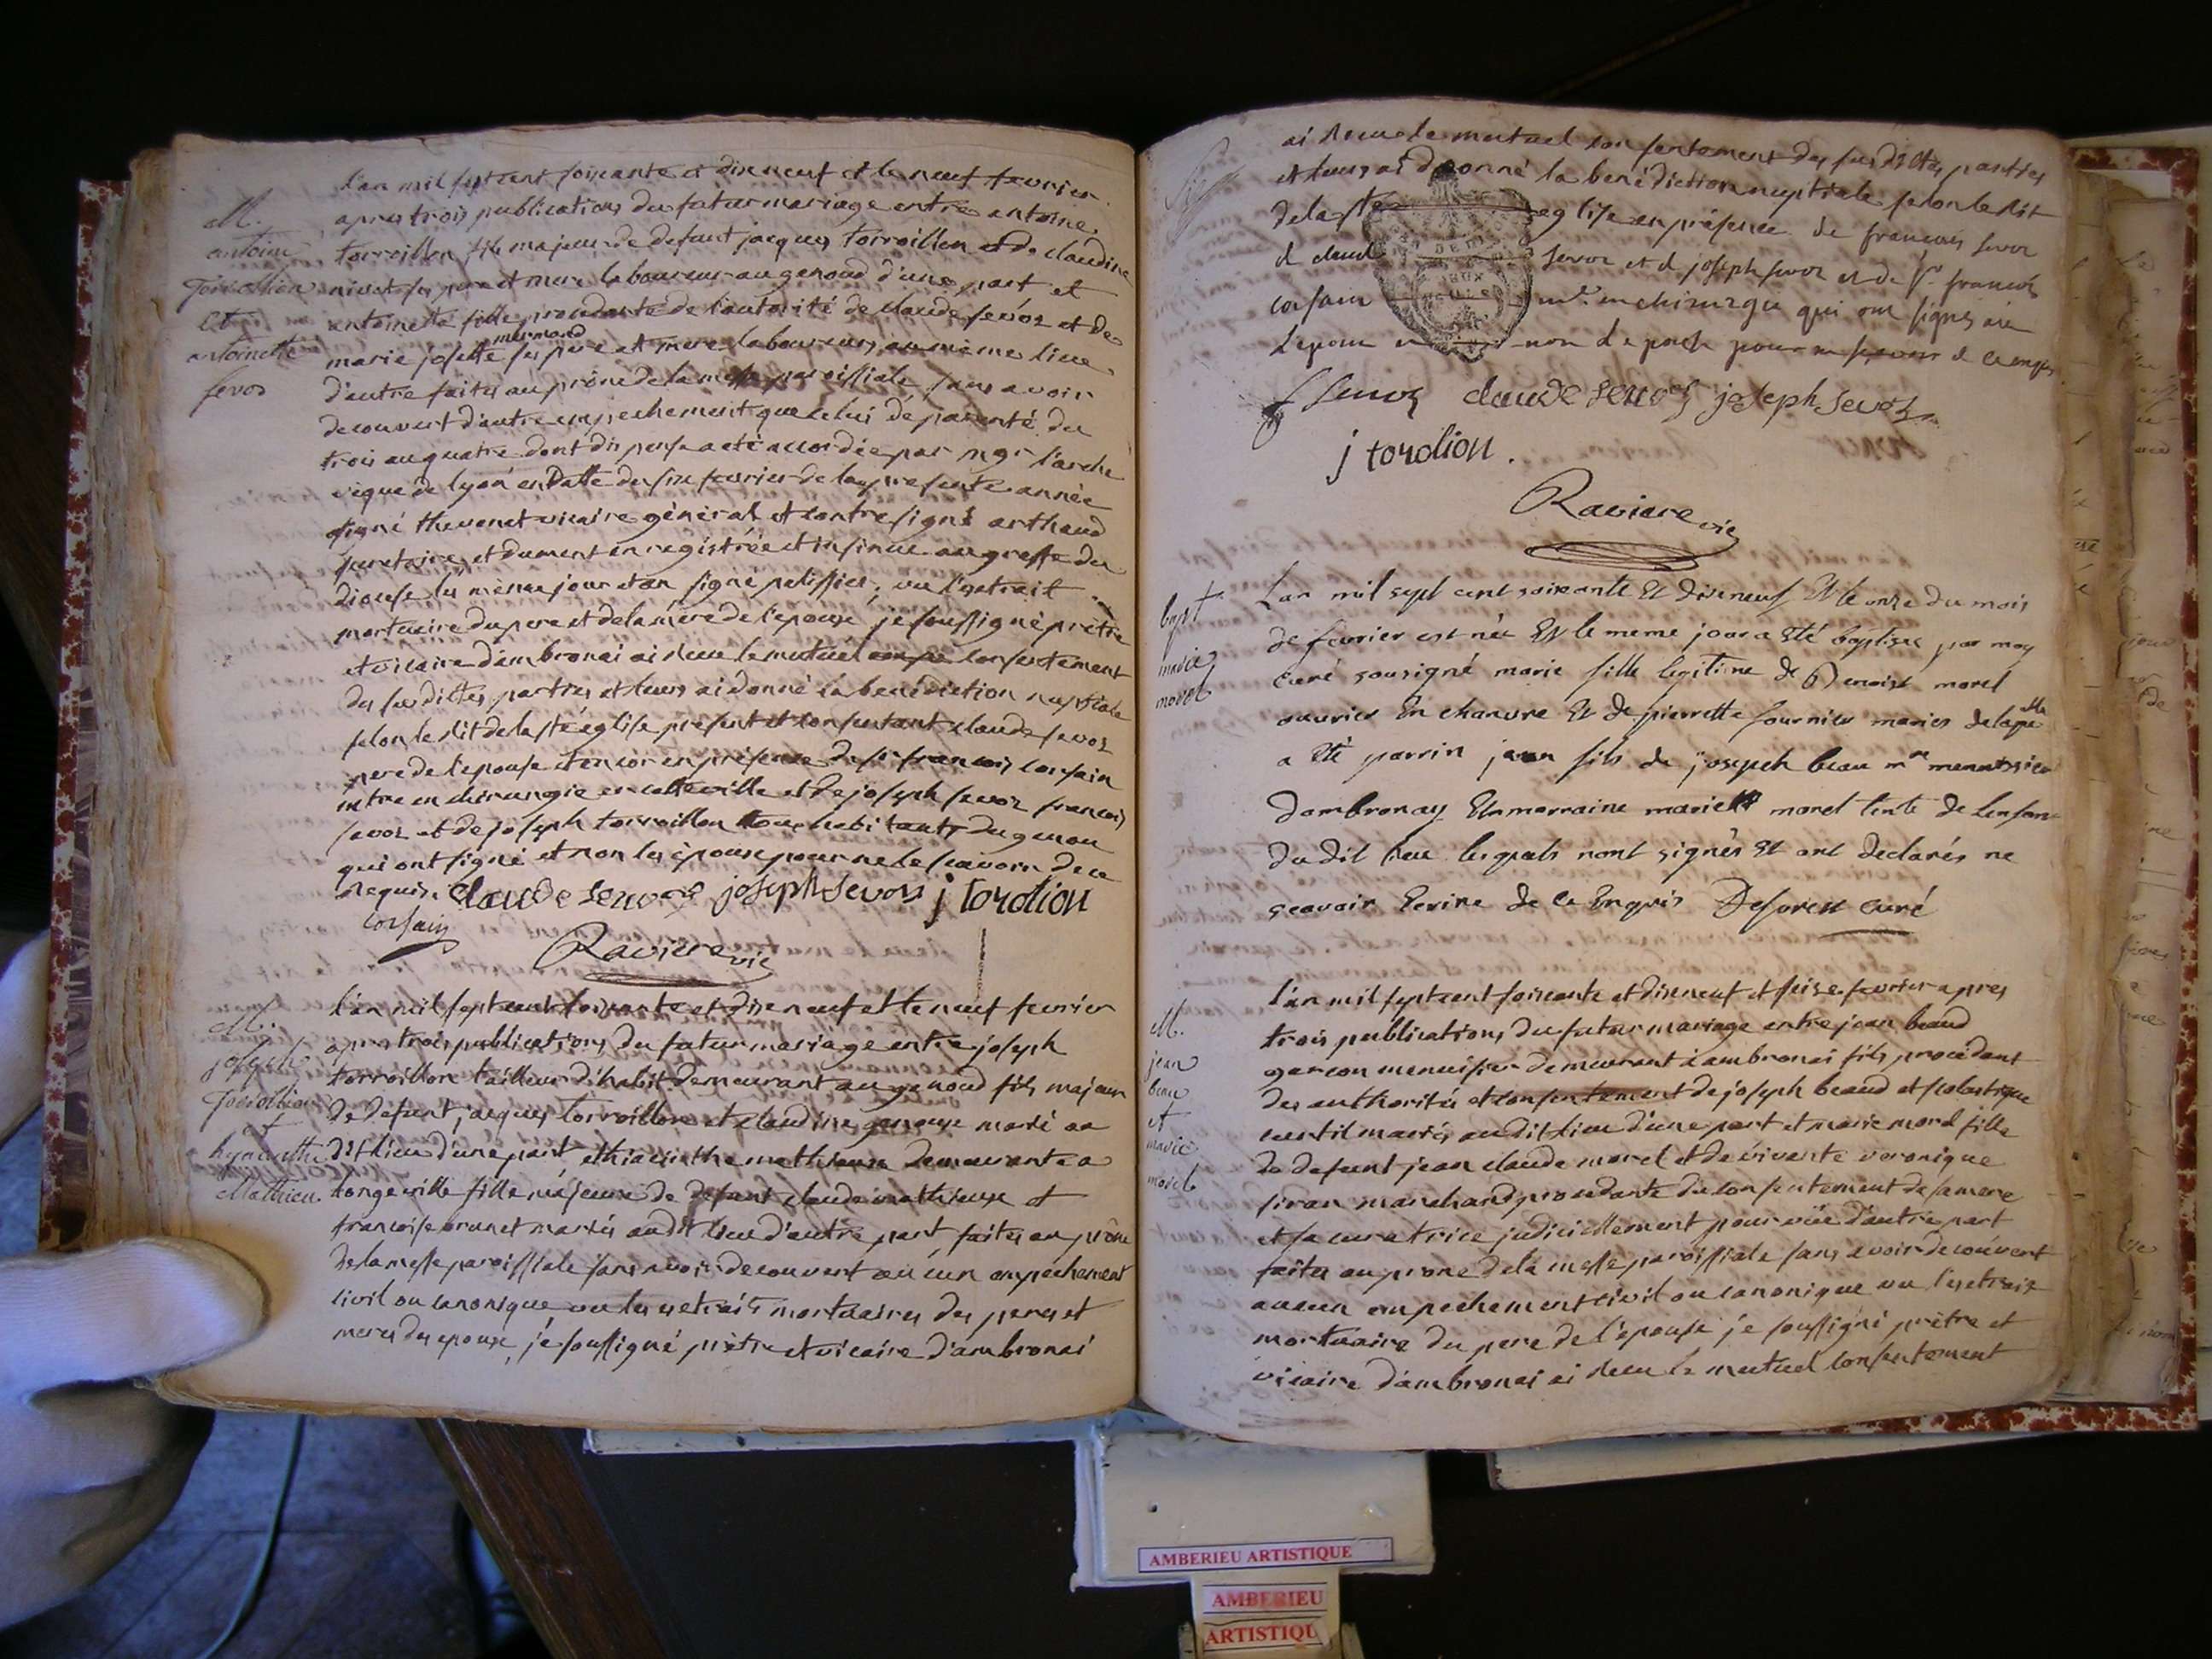 l'an mil sept cent soixante et dix neuf et le neuf fevrier
M.
antoine
Torrollion
et
antoinette
sevoz
apres trois publications du futur mariage entre antoine
torroillon fils majeur de defunt jacques torroillon et de claudine
nivet ses pere et mere laboureur au genoud d'une part et
antoinette fille procedante de l'autorité de claude sevoz et de
marie josette mermand ses pere et mere laboureurs au même lieu
d'autre faites au prône de la messe paroissiale sans avoir
decouvert d'autre empechement que celui de parenté du
trois au quatre dont dispense a eté accordée par mgr l'arche
vêque de lyon en datte du six fevrier de la presente année
signé thevenet vicaire géneral et contresigné arthaud
secretaire, et dument enregistrée et insinue au greffe du
diocese les même jour et an signé pelissier, vu l'extrait
mortuaire du pere et de la mère de l'epoux je soussigné prêtre
et vicaire d'ambronai ai reçu le mutuel consentement
des susdittes parties et leurs ai donné la benédiction nuptiale
selon le rit de la ste église présent et consentant claude sevoz
pere de l'epouse et encor en présence de sr françois corsain
mtre en chirurgie en cette ville et de joseph sevoz françois
sevoz et de joseph torroillon tous habitants du genou
qui ont signé et non les épouse pour ne le scavoir de ce
requis. claude sevoz joseph sevoz j torolion
corsain
Raviere vic
l'an mil sept cent soixante et dixe neuf et le neuf fevrier
M.
joseph
Torrollion
et
hyacinthe
Mathieu
apres trois publications du futur mariage entre joseph
torroillon tailleur d'habit demeurant au genoud fils majeur
de defunt jacques torroillon et claudine mariés au
dit lieu d'une part, et hiacinthe mathieux demeurante a
longeville fille majeure de defunt claude mathieux et
françoise brunet mariés au dit lieu d'autre part faites au prône
de la messe paroissiale sans avoir decouvert aucun empechement
civil ou canonique vu les extraits mortuaires des peres et
meres des epoux, je soussigné prêtre et vicaire d'ambronai
ai reçu le mutuel consentement des susdittes parties
et leurs ai donné la benédiction nuptiale selon le rit
de la ste eglise en présence de francois sevoz
d claud sevoz et d joseph sevoz et de sr francois
corsain mtre en chirurgie qui ont signés avec
l'epoux non l'epouse pour ne scavoir de ce enquis
f sevoz claude sevoz joseph sevoz
j torolion.
Raviere vic
bapt
marie
morel
Lan mil sept cent soixante Et dixneuf Et le onze du mois
de fevrier est née Et le meme jour a Eté baptisée par moy
curé sousigné marie fille legitime de Benoist morel
ouvrier En chanvre Et de pierrette fournier mariés
a Eté parrin jean fils de joseph beau mre menuissier
dambronay Et marraine marie morel tente de lenfant
du dit lieu lesquels nont signés Et ont declarés ne
scavoir Ecrire de ce Enquis Deforest curé
M.
jean
beau
et
marie
morel
l'an mil sept cent soixante et dixneuf et seize fevrier apres
trois publications du futur mariage entre jean beaud
garcon menuisier demeurant a ambronai fils procedant
des authorités et consentement de joseph beaud et scolastique
mariés au dit lieu d'une part et marie morel fille
de defunt jean claude morel et de vivante veronique
siran marchand procedante du consentement de sa mere
et sa curatrice judiciellement pourvüe d'autre part
faites au prone de la messe paroissiale sans avoir decouvert
aucun empechement civil ou canonique vu l'extrait
mortuaire du pere de l'epouse je soussigné prêtre et
vicaire d'ambronai ai reçu le mutuel consentement
AMBERIEU ARTISTIQUE
AMBERIEU
ARTISTIQU